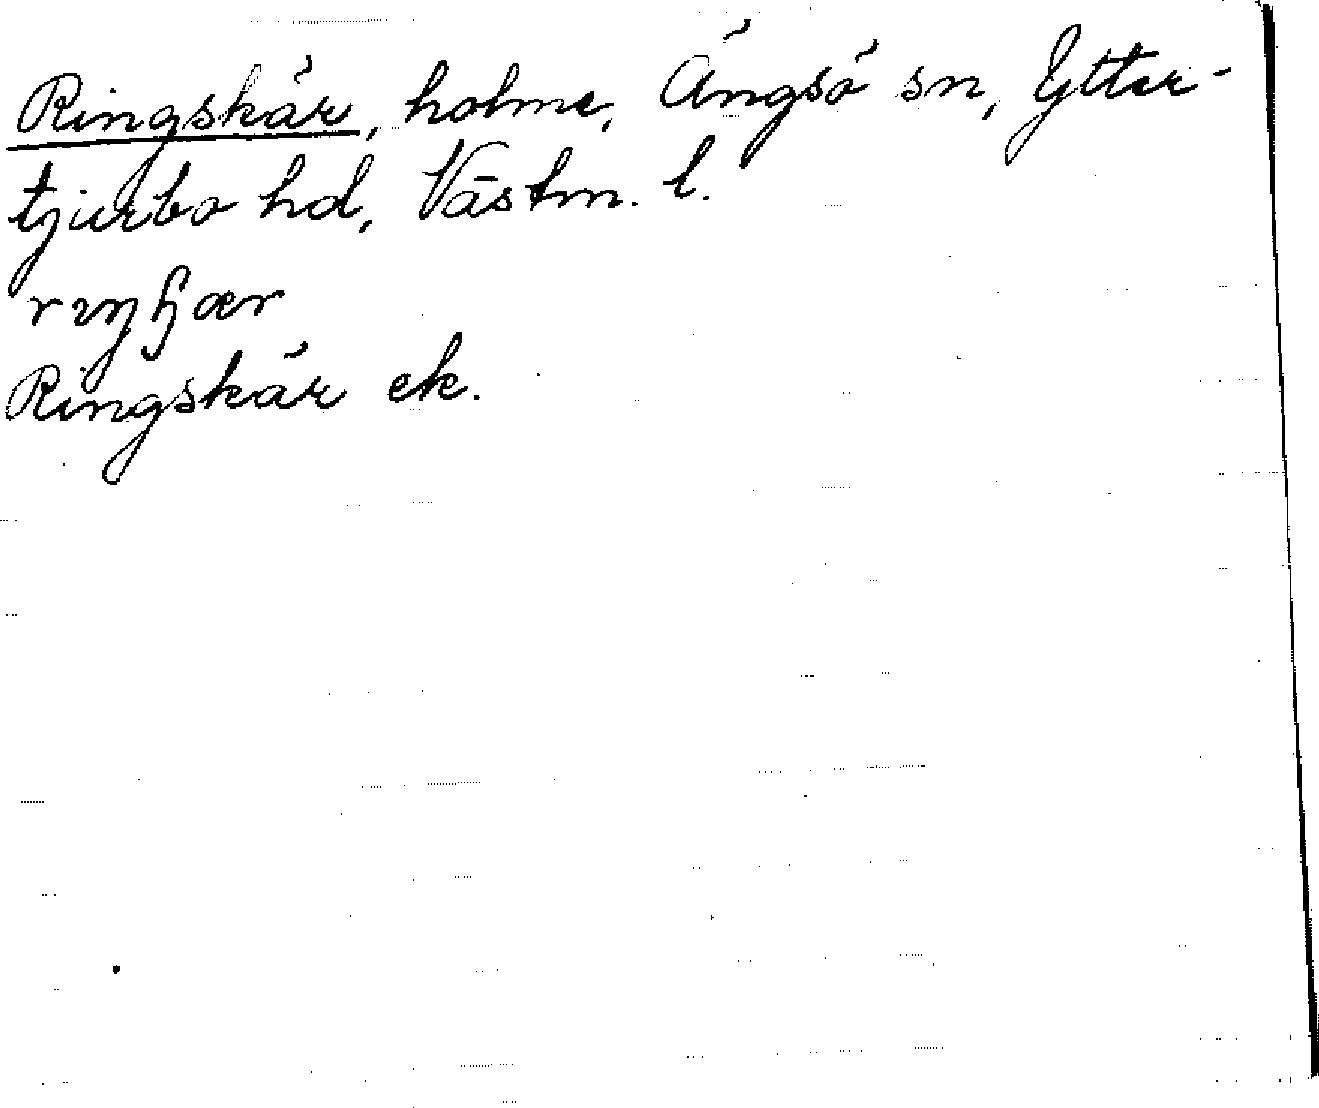 Ringskär, holme, Ängsö sn, Ytter-
tjurbo hd, Västm. l.
Ringskär ek.